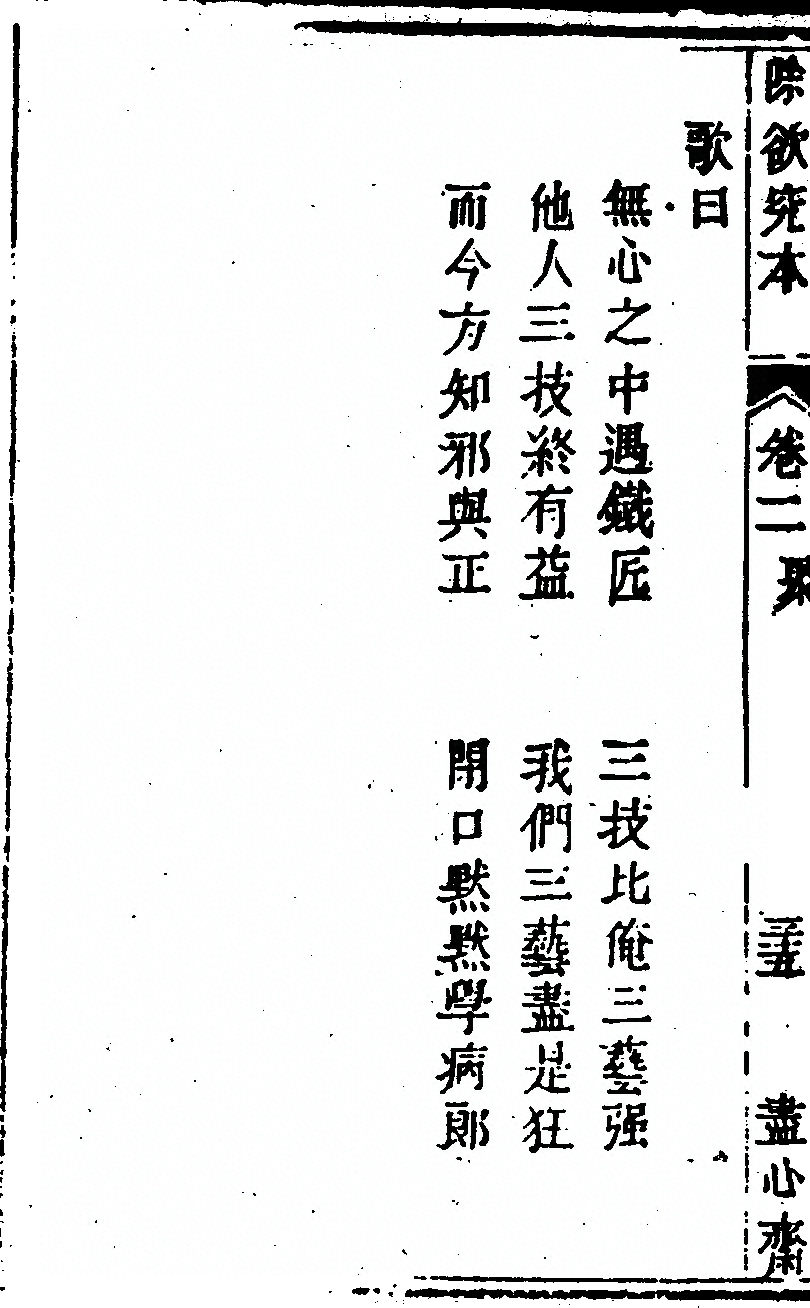 除欲究本 卷二 三五 盡心齋
歌曰
無心之中遇鐵匠 三技比俺三藝强
他人三技終有益 我們三藝盡是狂
而今方知邪與正 閉口默默學病郎